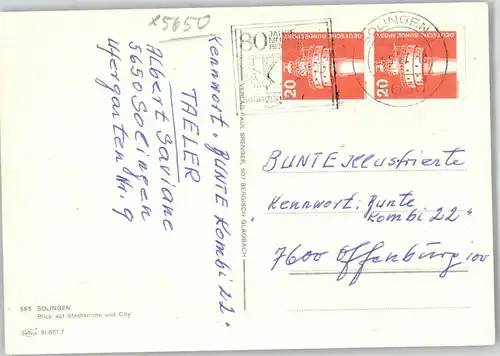 x5650
Kennwort. "BUNTE Kombi 22"
TAELER
Albert Gaviane
5650 Solingen
Ufergarten Nr. 9
565 SOLINGEN
Blick auf Stadtkirche und City
VERLAG PAUL SPRENGER, 507 BERGISCH GLADBACH
80 JAHRE
SOLINGEN
DEUTSCHE BUNDESPOST
20
DEUTSCHE BUNDESPOST
20
BUNTE Illustrierte
Kennwort: Bunte
Kombi 22"
7600 Offenburg 100